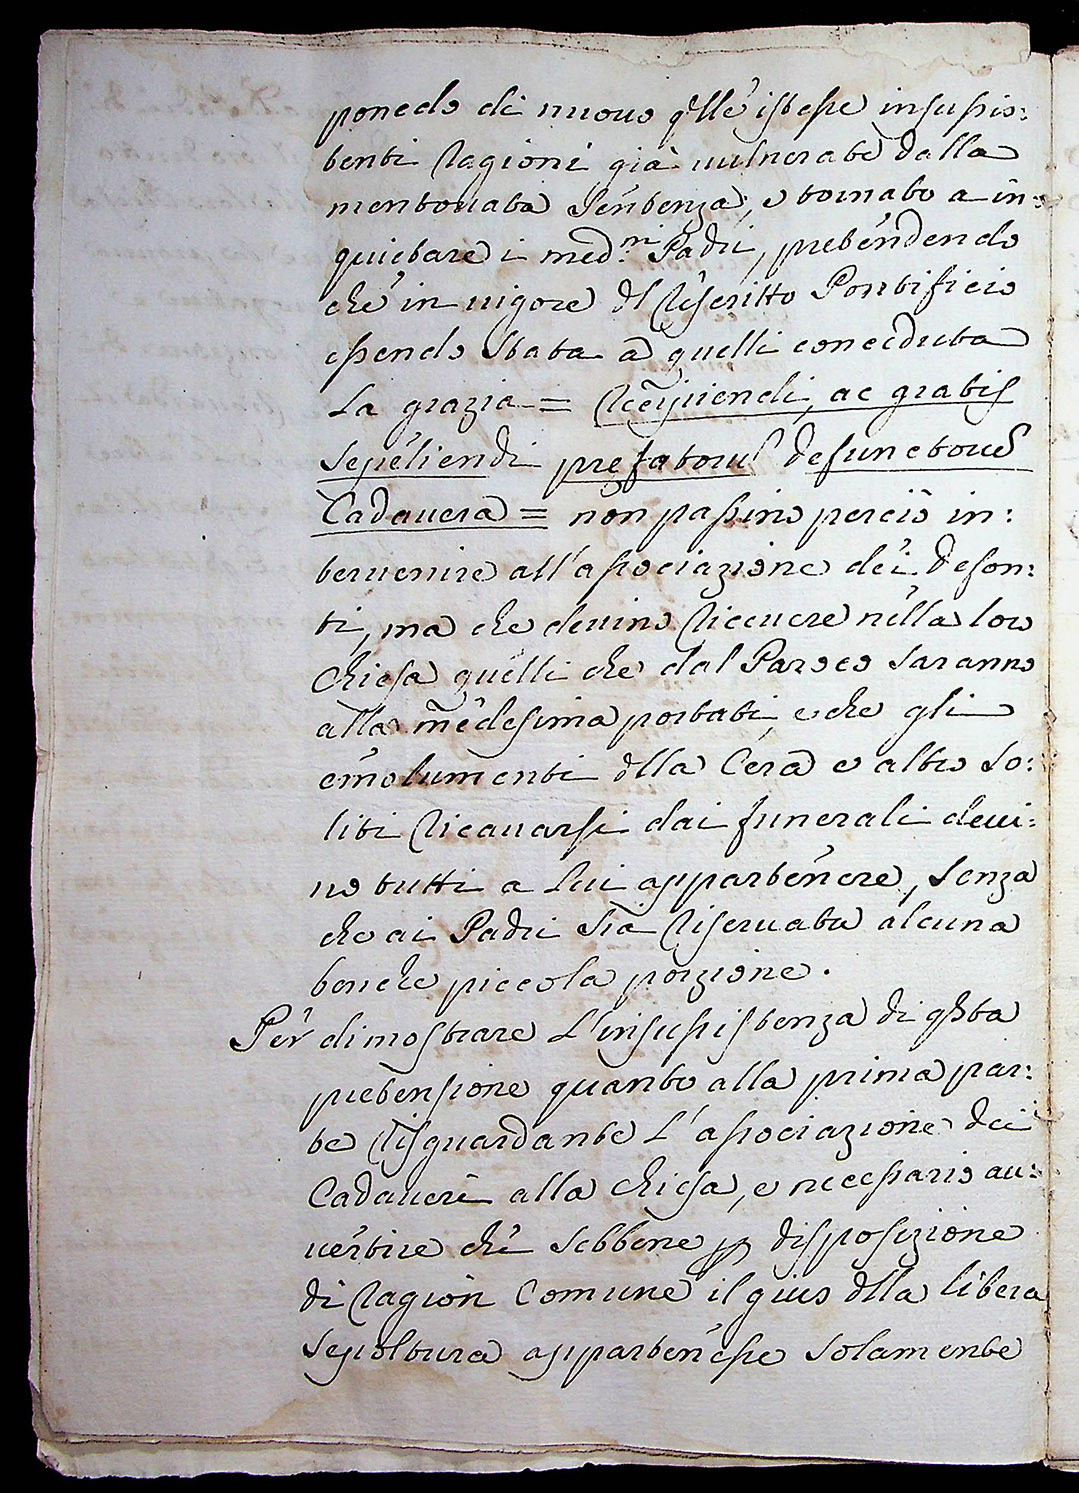 ponedo di nuovo qlle istesse insussis:
tenti Ragioni già vulnerate dalla
mentovata Sentenza, e tornato a in:
quietare i med.ni Padri, pretendendo
che in vigore dl Rescritto Pontificio
essendo Stata a quelli conceduta
La grazia = Recipiendi, ac gratis
sepeliendi prefatorus defunctorus
Cadavera = non possino perciò in:
tervenire all'associazione dei Defon:
ti, ma che devino Ricevere nella loro
Chiesa quelli che dal Paroco saranno
alla medesima portati, e che gli
emolumenti dlla Cera e altro so:
liti Ricavarsi dai funerali devi:
no tutti a Lui appartenere, Senza
che ai Padri sia Riservata alcuna
benche piccola porzione.
Per dimostrare L'insussistenza di qsta
pretensione quanto alla prima par:
te Risguardante L'associazione dei
Cadaveri alla Chiesa, e necessario av:
vertire che sebbene p disposizione
di Ragion Comune il gius dlla libera
Sepoltura appartenesse solamente